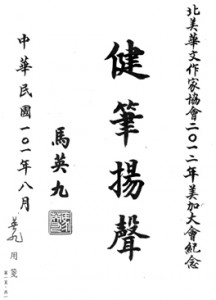 北美華文作家協會二〇一二年美加大會紀念
健筆揚聲
馬英九
中華民國一〇一年八月
英九用箋